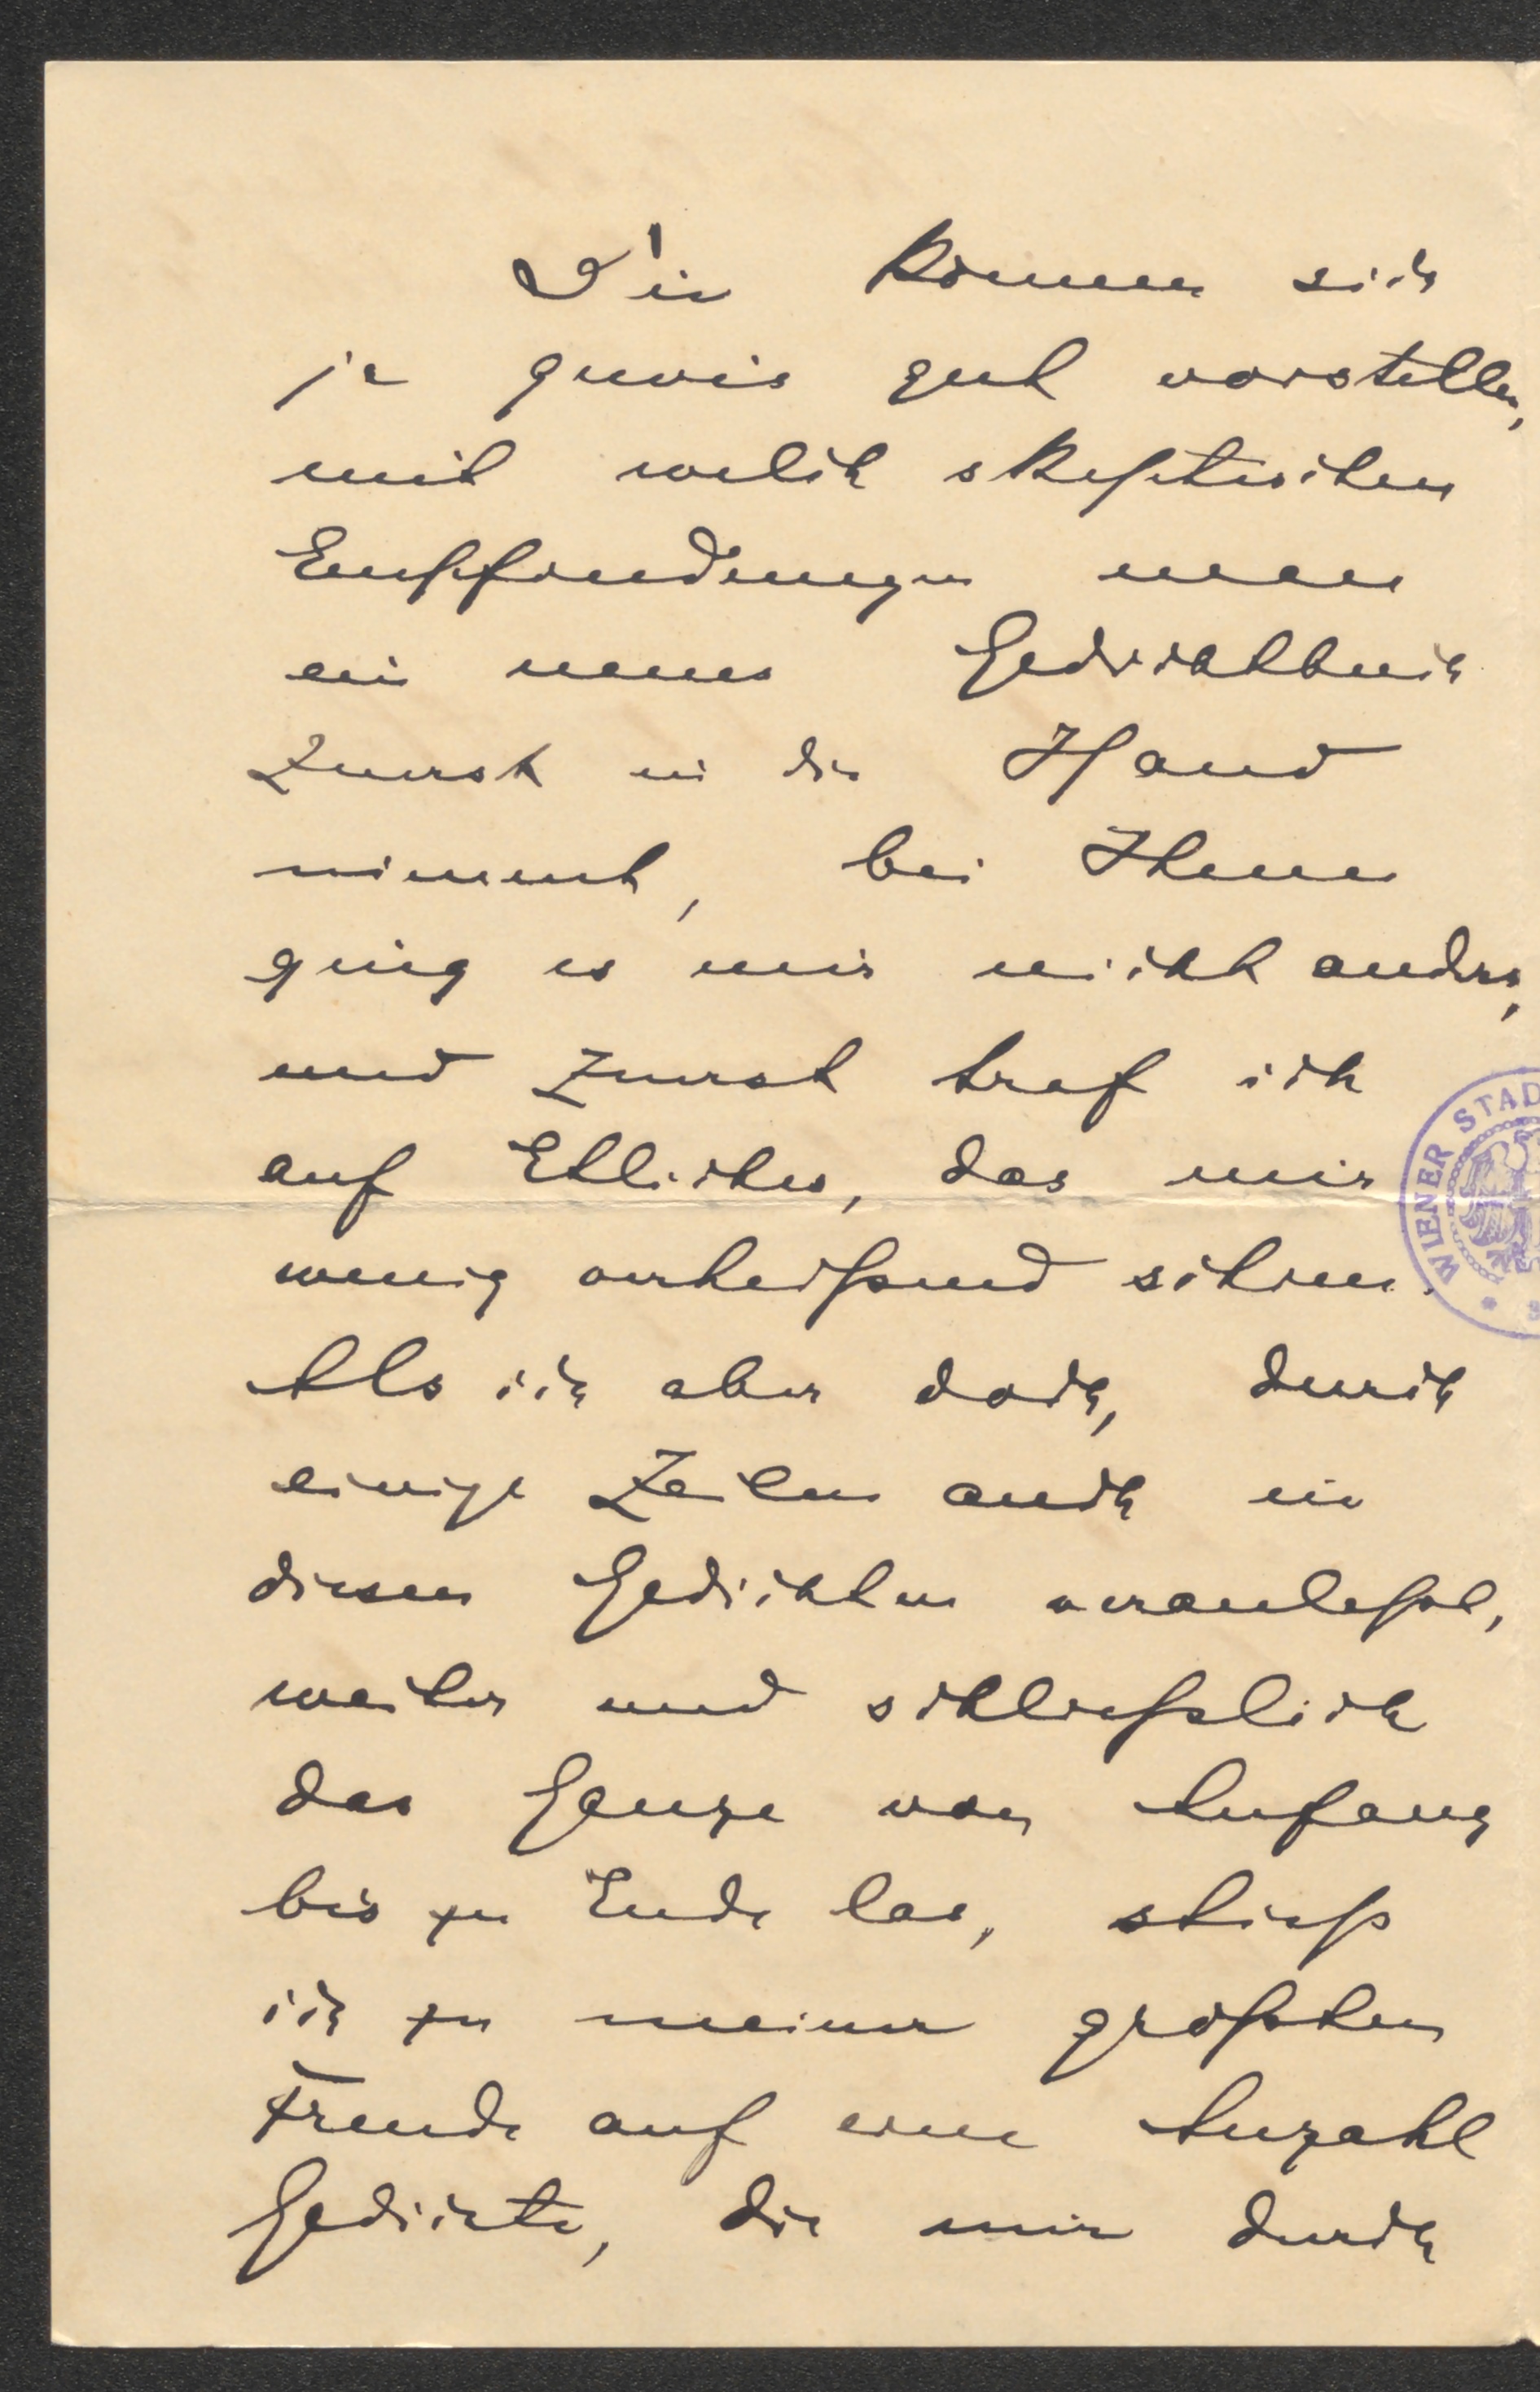 Sie können sich
ja gewis gut vorstellen,
mit welch skeptischen
Empfindungen man
ein neues Gedichtbuch
zuerst in die Hand
nimmt, bei Ihnen
ging es mir nicht anders,
und zuerst traf ich
auf Etliches, das mir
wenig verheißend schien.
Als ich aber doch, durch
einige Zeilen auch in
diesen Gedichten veranlaßt,
weiter und schließlich
das Ganze von Anfang
bis zu Ende las, stieß
ich zu meiner größten
Freude auf eine Anzahl
Gedichte, die mir durch
WIENER STAD